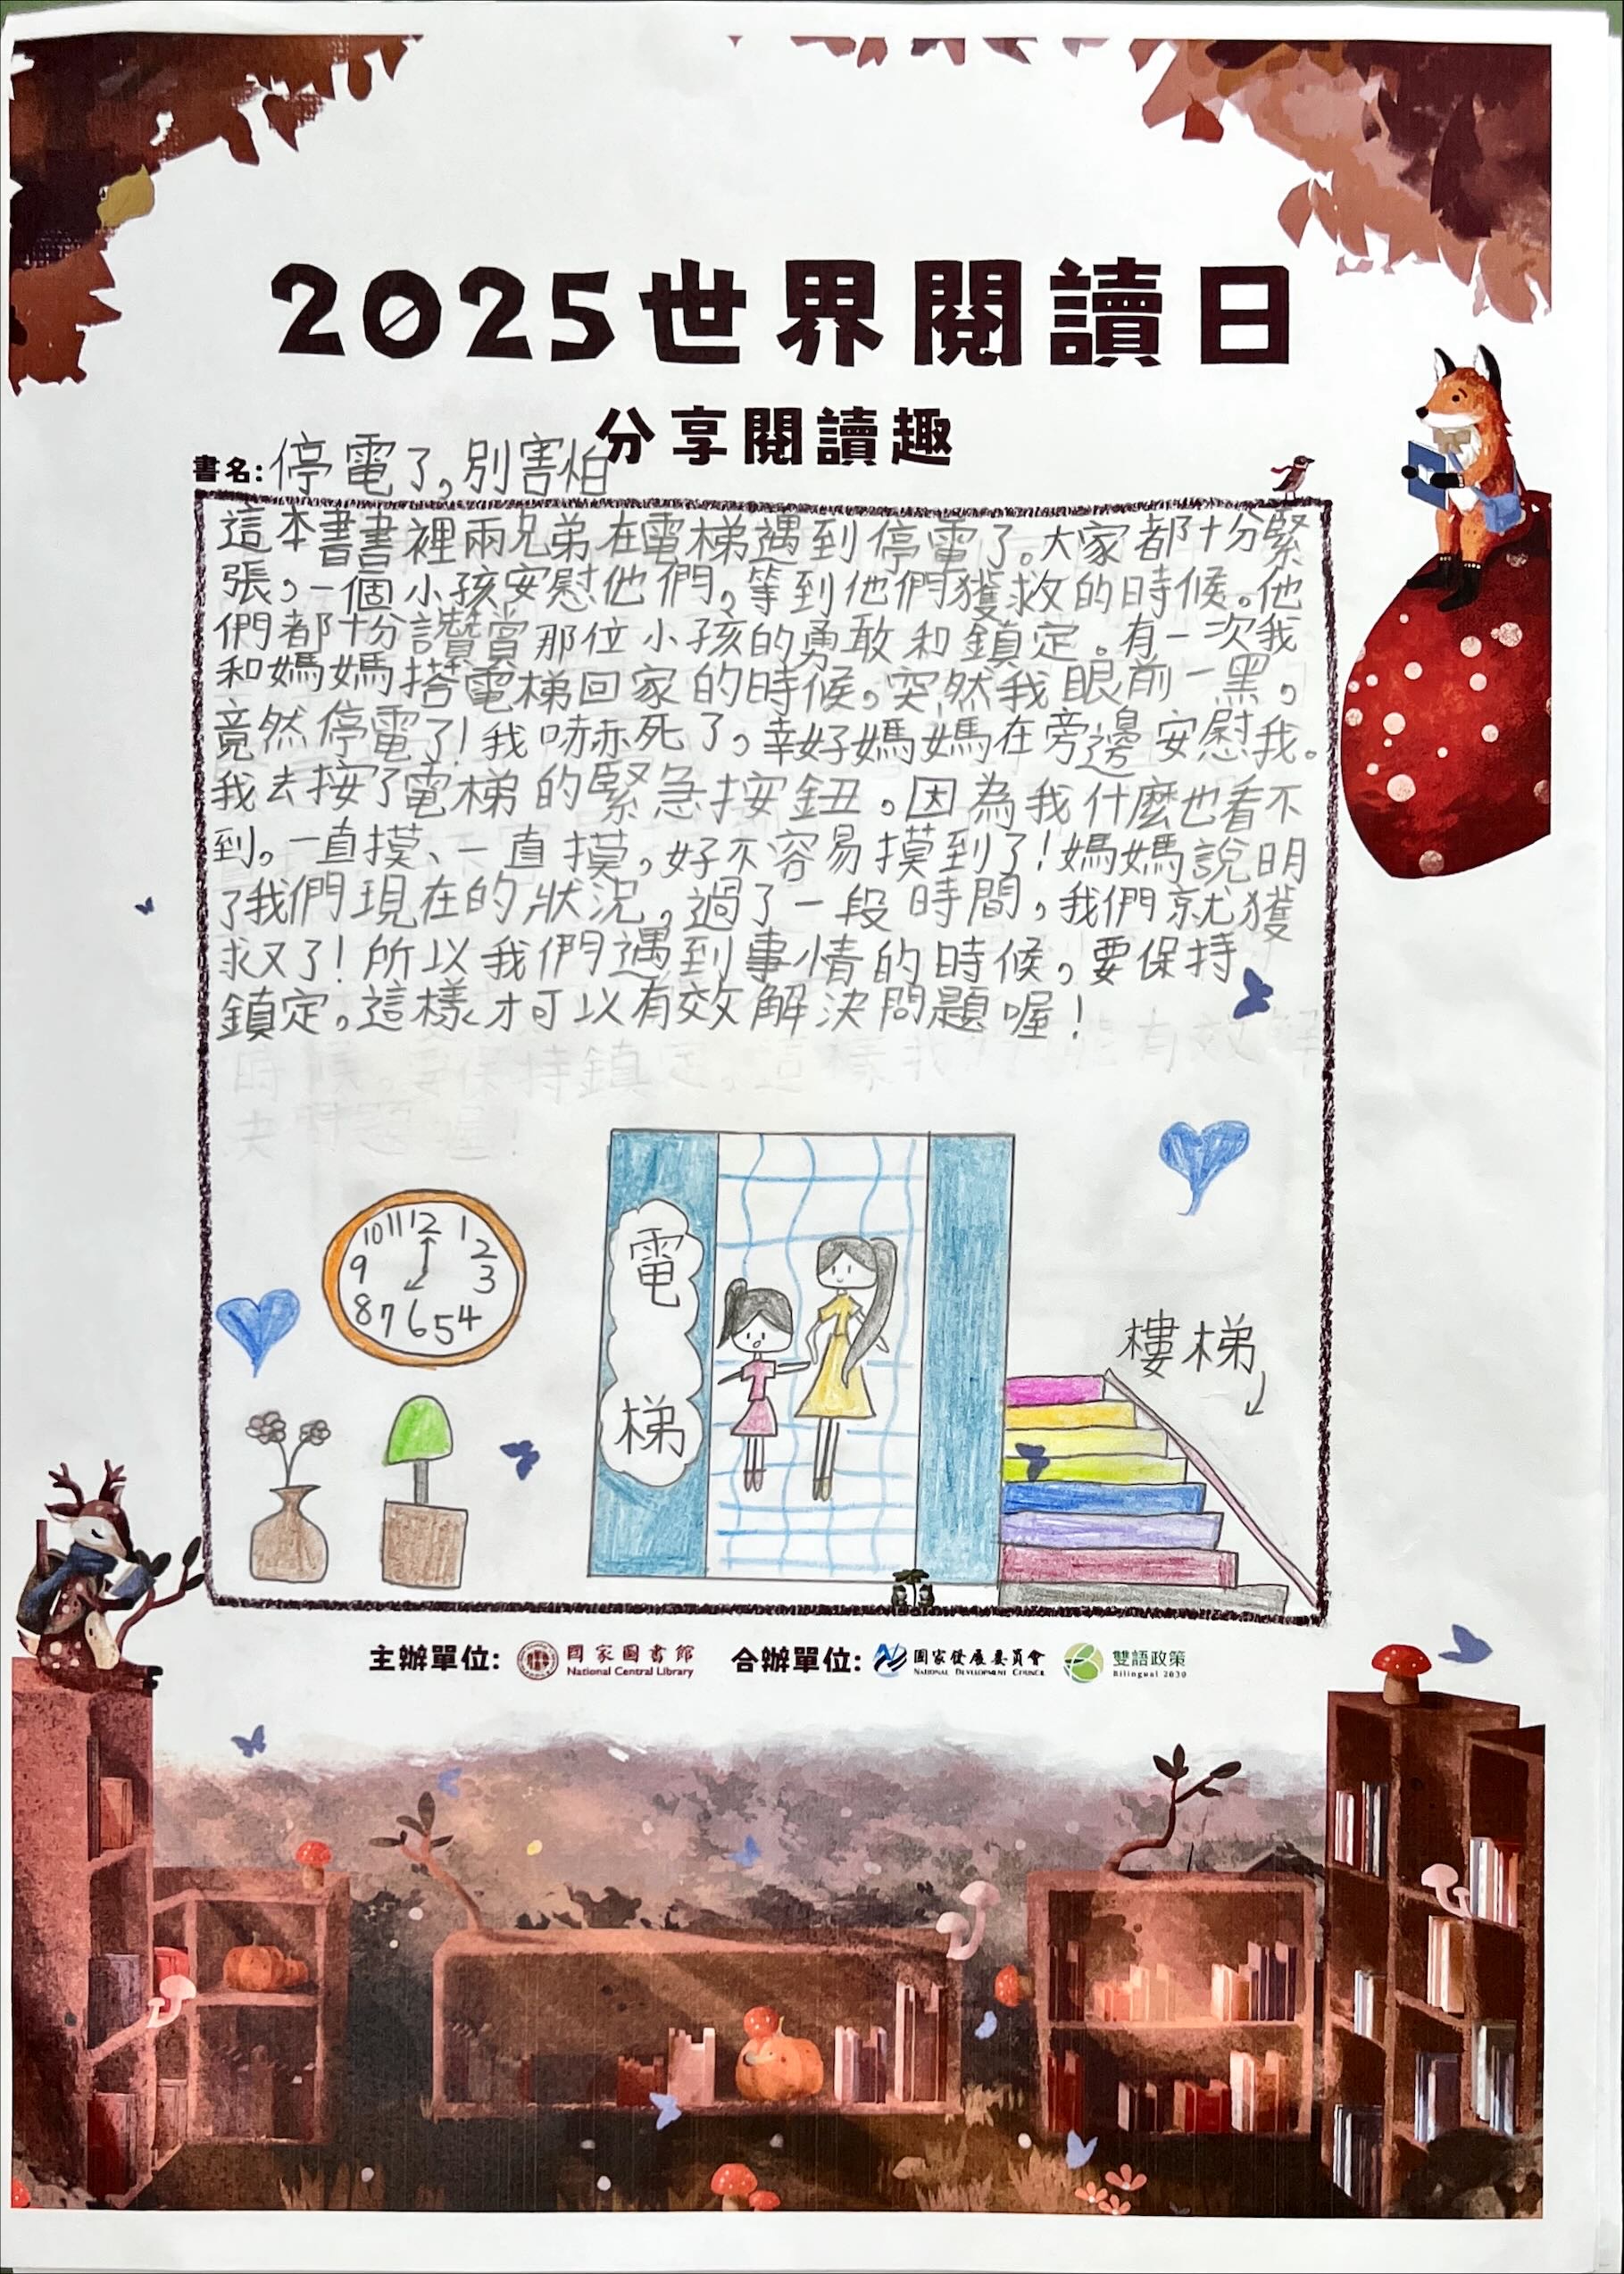 2025世界閱讀日
分享閱讀趣
書名:停電了,別害怕
這本書書裡兩兄弟在電梯遇到停電了。大家都十分緊
張。一個小孩安慰他們,等到他們獲救的時候。他
們都十分讚賞那位小孩的勇敢和鎮定。有一次我
和媽媽搭電梯回家的時候。突然我眼前一黑,
竟然停電了!我嚇死了,幸好媽媽在旁邊安慰我。
我去按了電梯的緊急按鈕。因為我什麼也看不
到。一直摸、一直摸,好不容易摸到了!媽媽說明
了我們現在的狀況,過了一段時間,我們就獲
救了!所以我們遇到事情的時候,要保持
鎮定。這樣才可以有效解決問題喔!
10 11 12 1
9 2
3
8 7 6 5 4
電
梯
樓梯
主辦單位: 國家圖書館 合辦單位: 國家發展委員會 雙語政策
National Central Library NATIONAL DEVELOPMENT COUNCIL Bilingual 2030